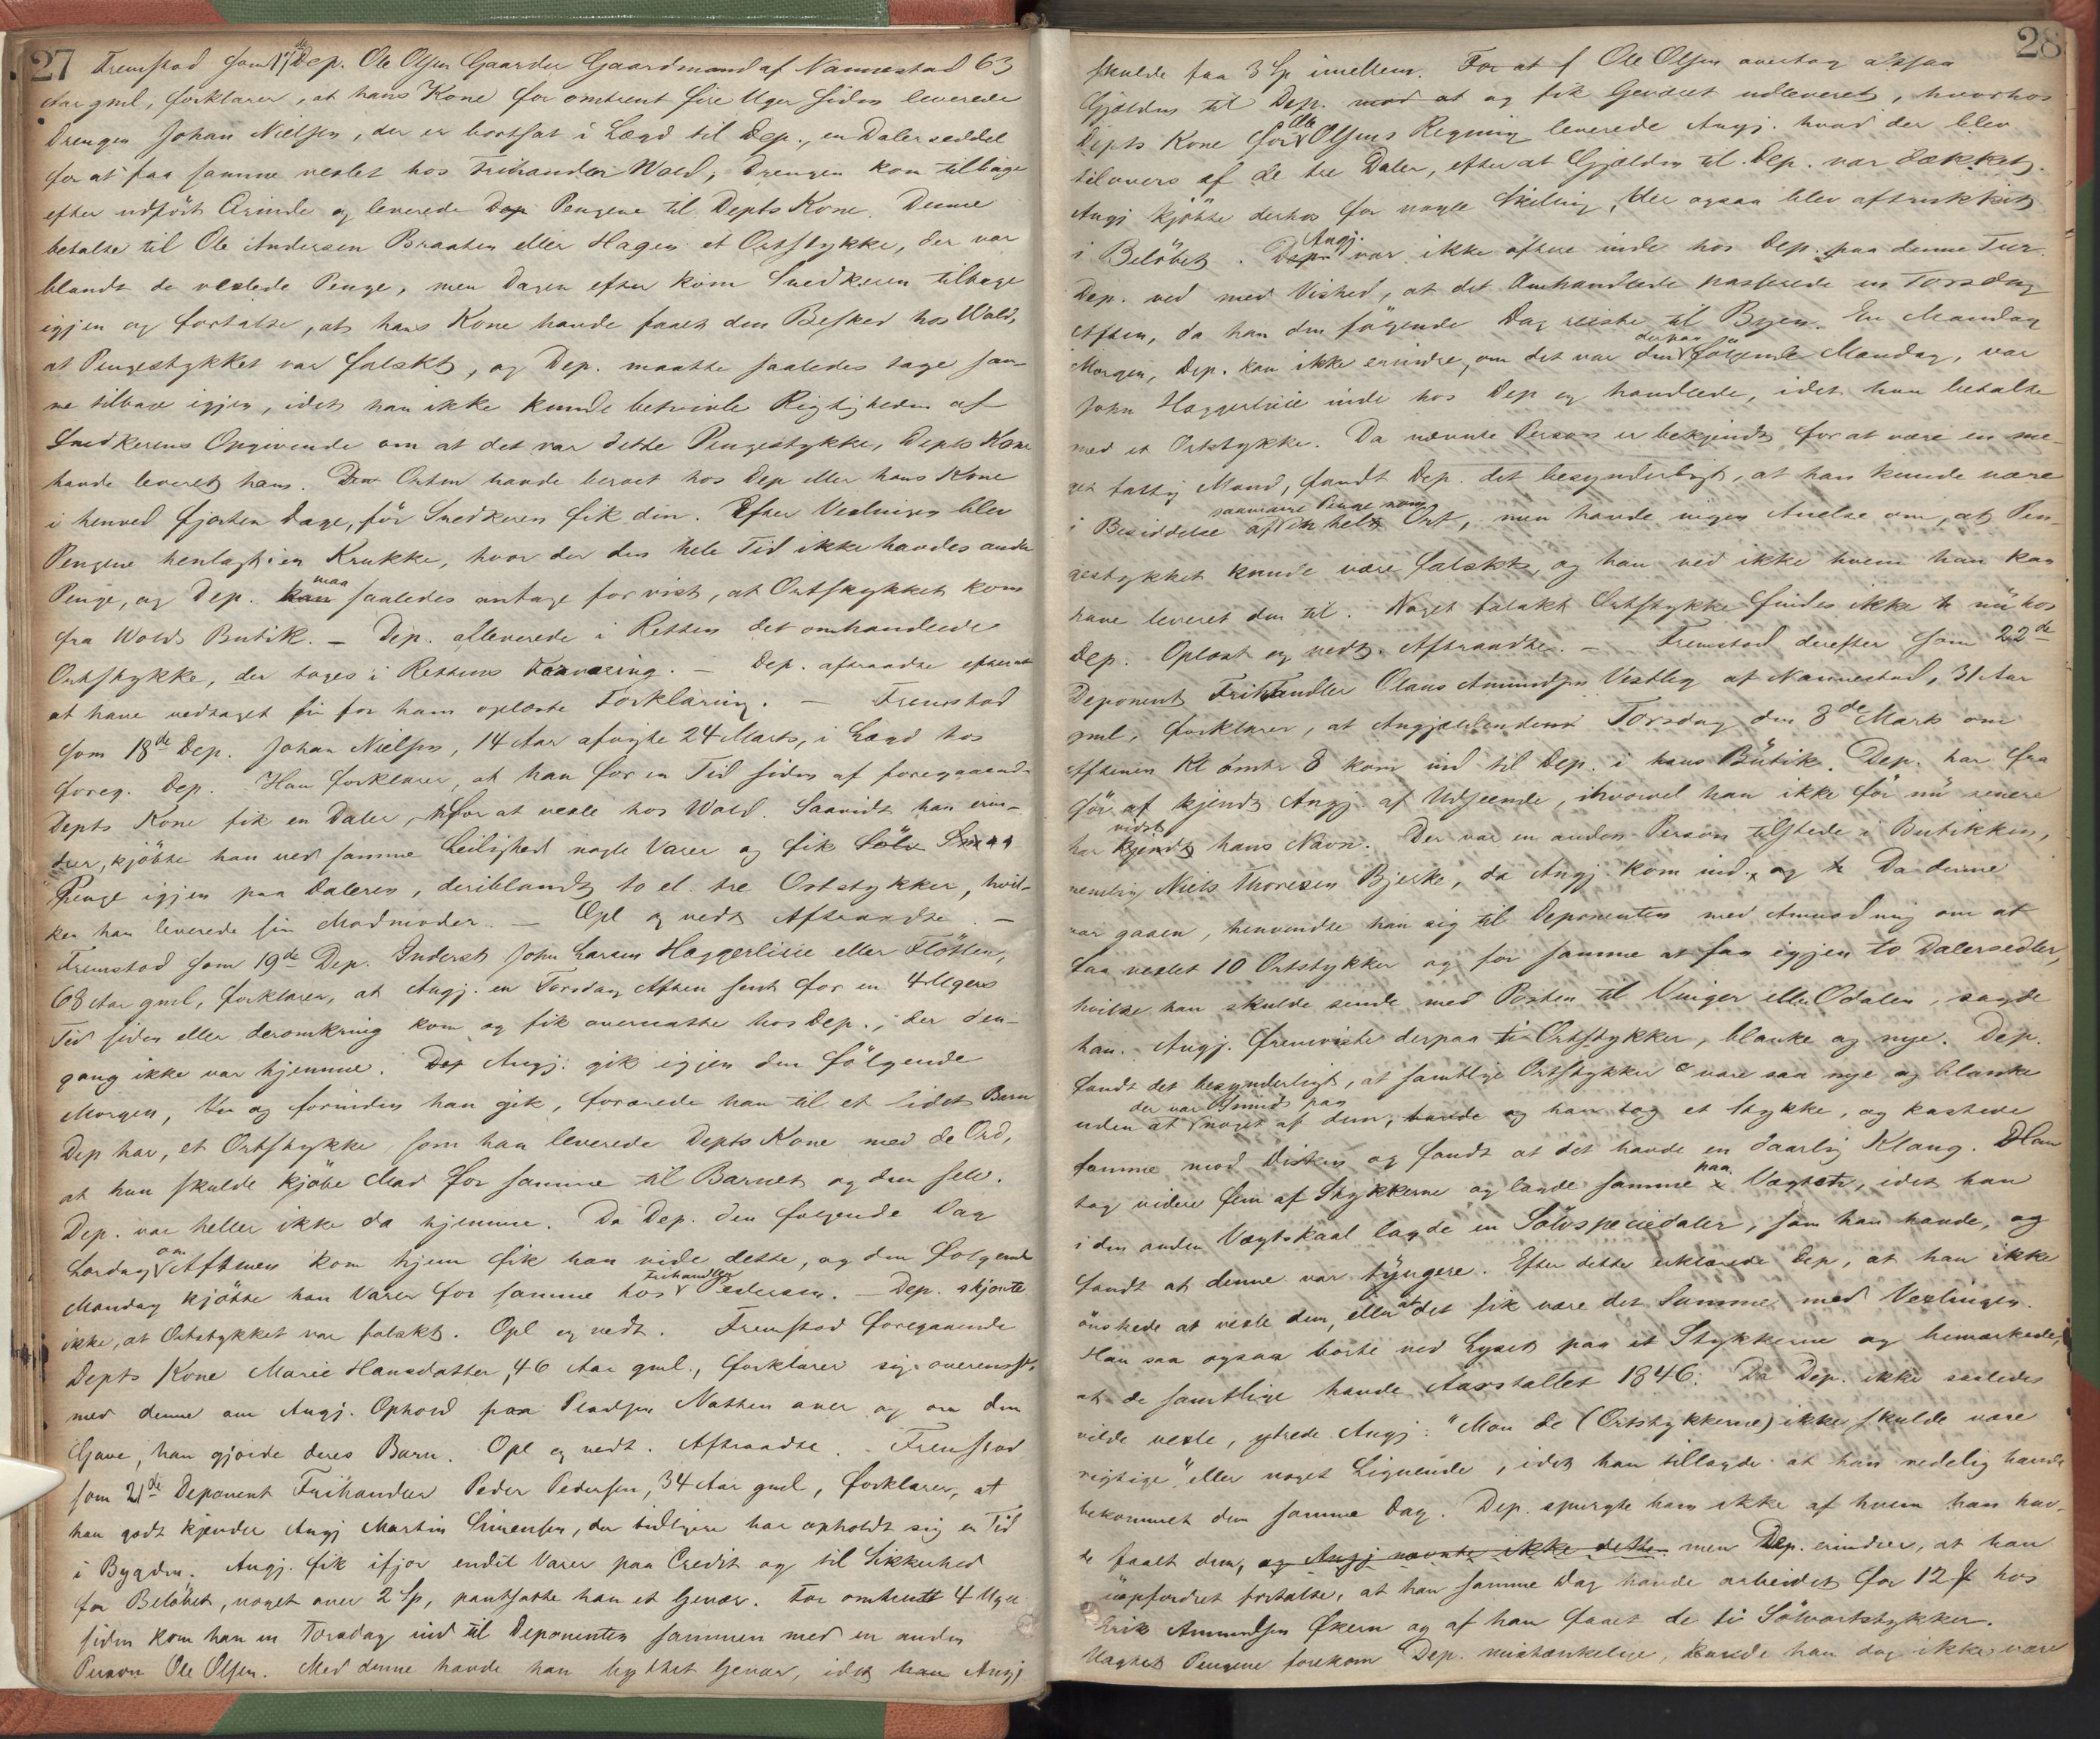 27
Fremstod som 17de Dep. Ole Olsen Gaarder Gaardmand af Nannestad 63
Aar gml, forklarer, at hans Kone for omtrent fire Uger siden leverede
Drengen Johan Nielsen, der er bortsat i Lægd til Dep., en Dalerseddel
for at faa samme vexlet hos Frihandler Wold, Drengen kom tilbage
efter udført Ærinde og leverede Dep Pengene til Depts Kone. Denne
betalte til Ole Andersen Braaten eller Hagen et Ortstykke, der var
blandt de vexlede Penge, men Dagen efter kom Snedkeren tilbage
igjen og fortalte, at hans Kone havde faaet den Besked hos Wold,
at Pengestykket var falskt, og Dep. maatte saaledes tage sam-
me tilbage igjen, idet han ikke kunde betvivle Rigtigheden af
Snedkerens Opgivende om at det var dette Pengestykke, Depts Kone
havde leveret ham. Den Orten havde beroet hos Dep eller hans Kone
i henved fjorten Dage, før Snedkeren fik den. Efter Vexlingen blev
Pengene henlagt i en Krukke, hvor der den hele Tid ikke havdes andre
Penge, og Dep. kan maa saaledes antage for vist, at Ortstykket kom
fra Wolds Butik. – Dep. afleverede i Retten det omhandlede
Ortstykke, der toges i Rettens Forvaring. – Dep. aftraadte efter at
at have vedtaget sin for ham oplæste Forklaring. – Fremstod
som 18de Dep. Johan Nielsen, 14 Aar afvigte 24 Marts, i Lægd hos
foreg. Dep. Han forklarer, at han for en Tid siden af foregaaende
Depts Kone fik en Daler for at vexle hos Wold. Saavidt han erin-
drer, kjøbte han ved samme Leilighed nogle Varer og fik Sölv Smaa
Penge igjen paa Daleren, deriblandt to el. tre Ortstykker, hvil-
ke han leverede sin Madmoder. – Opl og vedt Aftraadte. –
Fremstod som 19de Dep. Inderst John Larsen Haggerliie eller Flötten,
68 Aar gml, forklarer, at Angj. en Torsdag Aften sent for en 4 Ugers
Tid siden eller deromkring kom og fik overnatte hos Dep., der den-
gang ikke var hjemme. Dep Angj. gik igjen den følgende
Morgen, og forinden han gik, forærede han til et lidet Barn
Dep har, et Ortstykke som han leverede Depts Kone med de Ord,
at hun skulde kjøbe Mad for samme til Barnet og dem selv.
Dep. var heller ikke da hjemme. Da Dep. den følgende Dag
Lørdag om Aftenen kom hjem fik han vide dette, og den følgende
Mandag kjøbte han Varer for samme hos Frihandler Pedersen. – Dep. skjønte
ikke, at Ortstykket var falskt. Opl og vedt. Fremstod foregaaende
Depts Kone Marie Hansdatter, 46 Aar gml., forklarer sig overensst.
med denne om Angj. Ophold paa Pladsen Natten over og om den
Gave, han gjorde deres Barn. Opl og vedt. Aftraadte. – Fremstod
som 21de Deponent Frihandler Peder Pedersen, 34 Aar gml, forklarer, at
han godt kjender Angj Martin Simensen, der tidligere har opholdt sig en Tid
i Bygden. Angj. fik ifjor endel Varer paa Credit og til Sikkerhed
for Beløbet, noget over 2 Sp, pantsatte han et Gevær. For omtrent 4 Uger
siden kom han en Torsdag ind til Deponenten sammen med en anden
Person Ole Olsen. Med denne havde han byttet Gevær, idet han Angj
28
skulde faa 3 Sp imellem. For at f Ole Olsen overtog altsaa
Gjælden til Dep. mod at og fik Geværet udleveret, hvorhos
Depts Kone for Ole Olsens Regning leverede Angj. hvad der blev
tilovers af de tre Daler, efter at Gjælden til Dep. var dækket.
Angj kjøbte derhos for nogle Skilling, der ogsaa blev aftrukket
i Beløbet. Depn Angj. var ikke oftere inde hos Dep. paa denne Tur.
Dep. ved med Vished, at det Omhandlede passerede en Torsdag
Aften, da han den følgende Dag reiste til Byen. En Mandag
Morgen, Dep. kan ikke erindre, om det var den derpaa følgende Mandag, var
John Haggerliie inde hos Dep og handlede, idet han betalte
med et Ortstykke. Da nævnte Person er bekjendt for at være en me-
get fattig Mand, fandt Dep. det besynderligt, at han kunde være
i Besiddelse af saamange Penge som en hel Ort, men havde ingen Anelse om, at Pen-
gestykket kunde være falskt, og han ved ikke hvem han kan
have leveret den til. Noget falskt Ortstykke findes ikke nu hos
Dep. Oplæst og vedt. Aftraadte. – Fremstod derefter som 22de
Deponent Frihandler Olaus Amundsen Vestby af Nannestad, 31 Aar
gml, forklarer, at Angjældende Torsdag den 8de Marts om
Aftenen Kl omtr 8 kom ind til Dep. i hans Butik. Dep. har fra
før af kjendt Angj. af Udseende, ihvorvel han ikke før nu senere
har kjendt vidst hans Navn. Der var en anden Person tilstede i Butikken,
nemlig Niels Thoresen Bjerke, da Angj kom ind, og Da denne
var gaaen, henvendte han sig til Deponenten med Anmodning om at
faa vexlet 10 Ortstykker og for samme at faa igjen to Dalersedler,
hvilke han skulde sende med Posten til Vinger eller Odalen, sagde
han. Angj. fremviste derpaa ti Ortstykker, blanke og nye. Dep.
fandt det besynderligt, at samtlige Ortstykker vare saa nye og blanke
uden at der var Smuds paa noget af dem, havde og han tog et Stykke, og kastede
samme mod Disken og fandt at det havde en daarlig Klang. Han
tog videre fem af Stykkerne og lagde samme paa Vægten, idet han
i den anden Vægtskaal lagde en Sölvspeciedaler, som han havde, og
fandt at denne var tyngere. Efter dette erklærede Dep, at han ikke
ønskede at vexle dem, eller at det fik være det Samme med Vexlingen.
Han saa ogsaa borte ved Lyset paa et Stykkerne og bemærkede,
at de samtlige havde Aarstallet 1846. Da Dep. ikke saaledes
vilde vexle, ytrede Angj: "Mon de (Ortstykkerne) ikke skulde være
rigtige" eller noget Lignende, idet han tillagde at han redelig havde
bekommet dem samme Dag. Dep. spurgte ham ikke af hvem han hav-
de faaet dem, og Angj nævnte ikke dette men Dep. erindrer, at han
uopfordret fortalte, at han samme Dag havde arbeidet for 12 ß hos
Erik Amundsen Økern og af han faaet de ti Sölvortstykker.
Uagtet Pengene forekom Dep. mistænkelige, kunde han dog ikke være